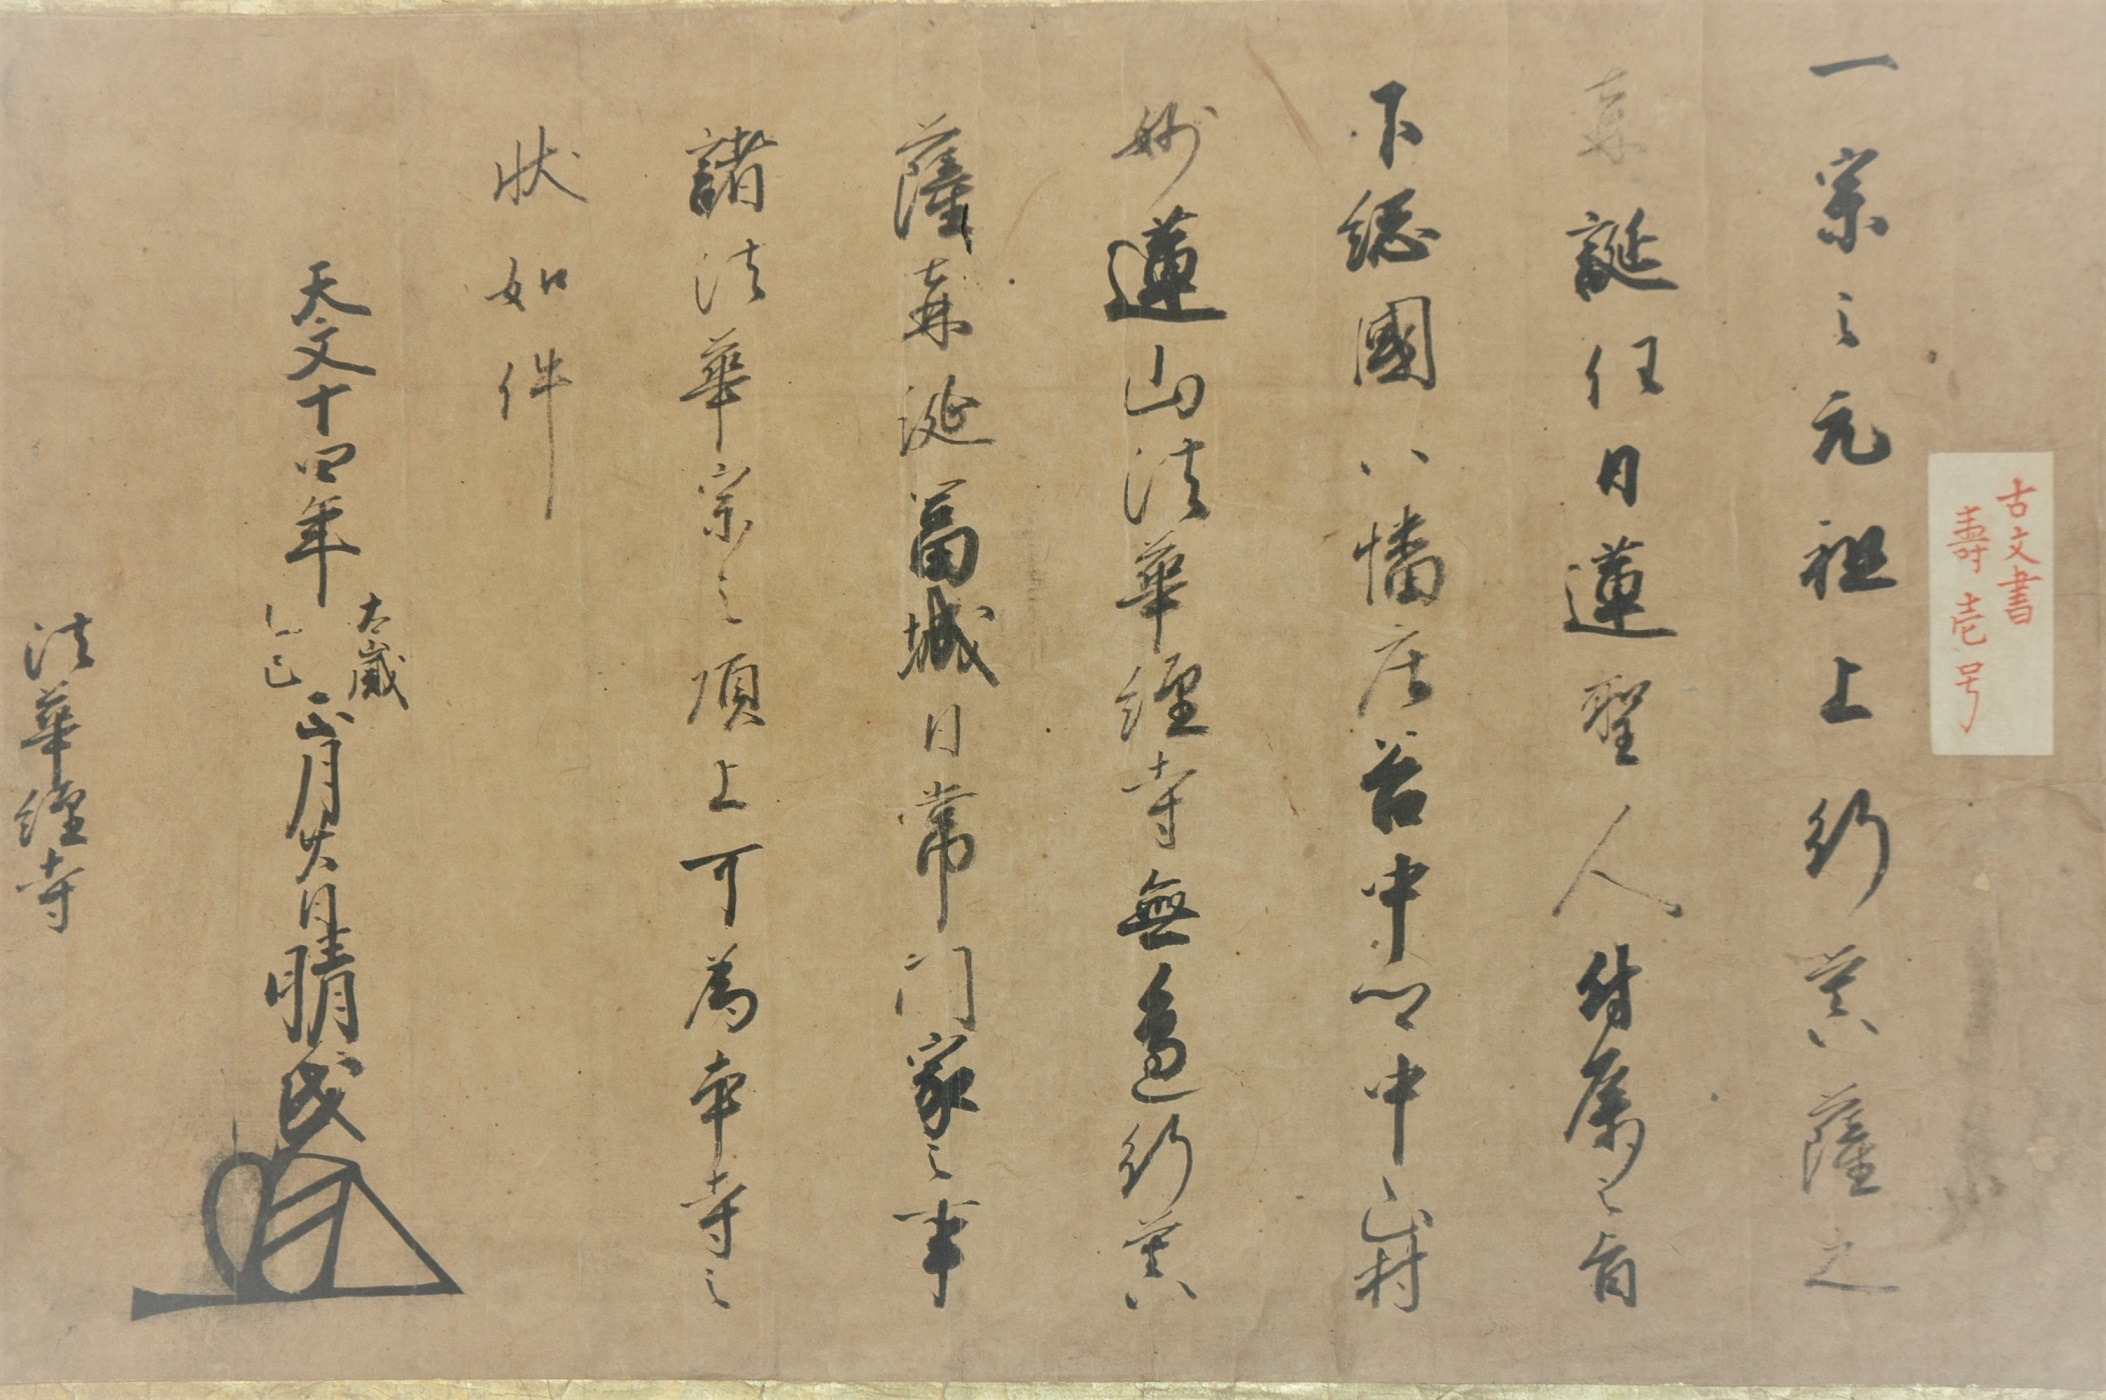 古文書
壽壱号
一宗之元祖上行菩薩之
再誕任日蓮聖人付属之旨
下総國八幡庄谷中郷中山村
妙蓮山法華経寺無邊行菩
薩再誕冨城日常門家之事
諸法華宗之頂上可為本寺之
状如件
天文十四年大歳乙巳正月廿八日晴氏
法華経寺